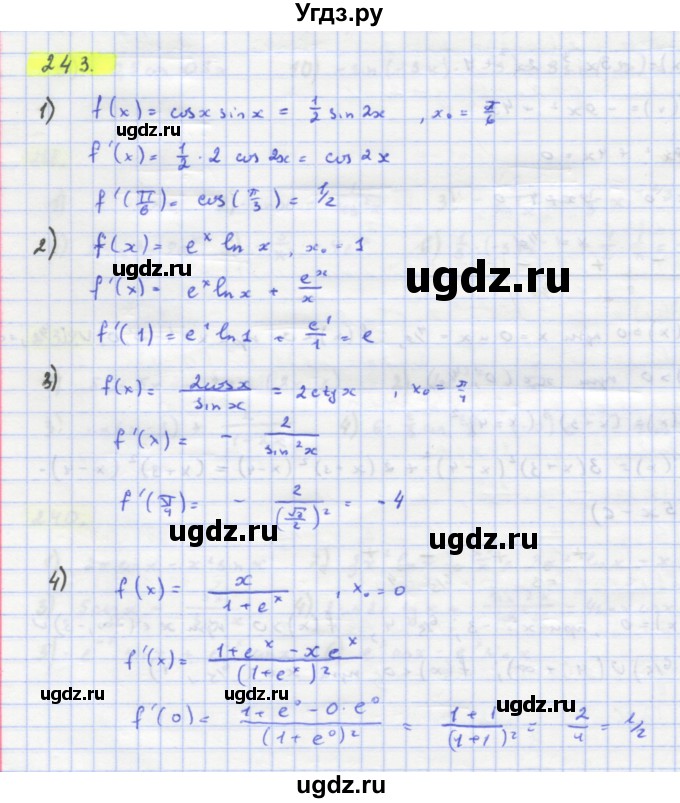 Угдз.ру
243.
1) f(x) = cosx sin x = 1/2 sin 2x , x₀ = π/6
ugdz.ru
f'(x) = 1/2 · 2 cos 2x = cos 2x
f'(π/6) = cos(π/3) = 1/2
2) f(x) = eˣ ln x , x₀ = 1
ugdz.ru
ugdz.ru
f'(x) = eˣ ln x + eˣ/x
f'(1) = e¹ ln 1 + e¹/1 = e
3) f(x) = 2cosx/sin x = 2ctgx , x₀ = π/4
f'(x) = - 2/sin²x
f'(π/4) = - 2/(√2/2)² = -4
ugdz.ru
ugdz.ru
4) f(x) = x/(1+eˣ) , x₀ = 0
f'(x) = (1+eˣ - x eˣ)/(1+eˣ)²
ugdz.ru
ugdz.ru
f'(0) = (1+e⁰ - 0·e⁰)/(1+e⁰)² = (1+1)/(1+1)² = 2/4 = 1/2
ugdz.ru